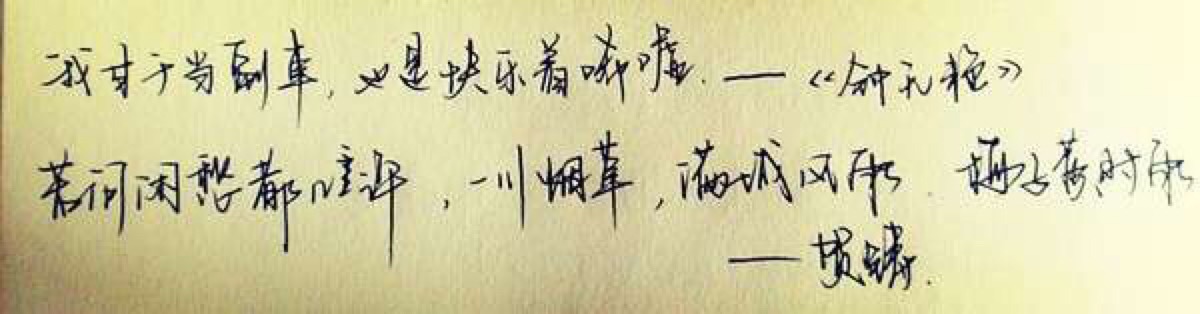 我甘于当副车,也是快乐着唏嘘.——《钟无艳》
若问闲愁都许,一川烟草,满城风雨.梅子黄时雨
——贺铸.